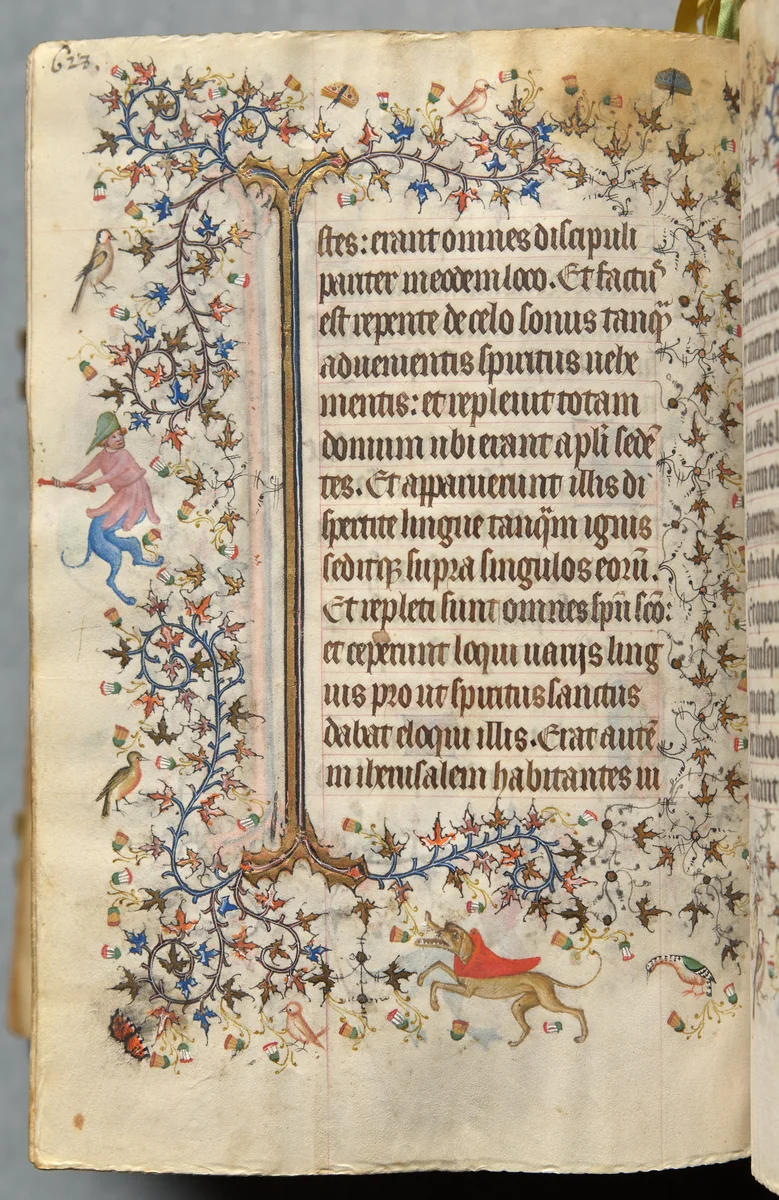 623.
stes: erant omnes discipuli
pariter in eodem loco. Et factū
est repente de celo sonus tanq̄
aduenientis spiritus uehe
mentis: et repleuit totam
domum ubi erant apl̄i sedē
tes. Et apparuerunt illis di
spertite lingue tanq̄m ignis
seditqꝫ supra singulos eorū.
Et repleti sunt omnes sp̄u sc̄o:
et ceperunt loqui uarijs ling
uis pro ut spiritus sanctus
dabat eloqui illis. Erāt autē
in iherusalem habitantes iu